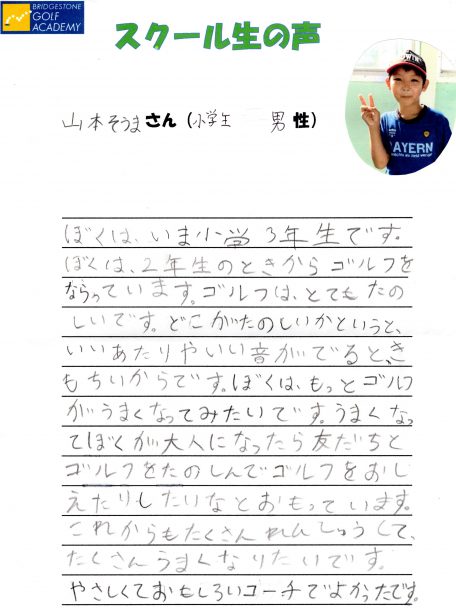 BRIDGESTONE
GOLF
ACADEMY
スクール生の声
山本そうまさん（小学生　男性）
BAYERN
ぼくは、いま小学3年生です。
ぼくは、2年生のときからゴルフを
ならっています。ゴルフは、とてもたの
しいです。どこがたのしいかというと、
いいあたりやいい音がでると、き
もちいからです。ぼくは、もっとゴルフ
がうまくなってみたいです。うまくなっ
てぼくが大人になったら友だちと
ゴルフをたのしんでゴルフをおし
えたりしたいなとおもっています。
これからもたくさんれんしゅうして、
たくさんうまくなりたいです。
やさしくておもしろいコーチでよかったです。